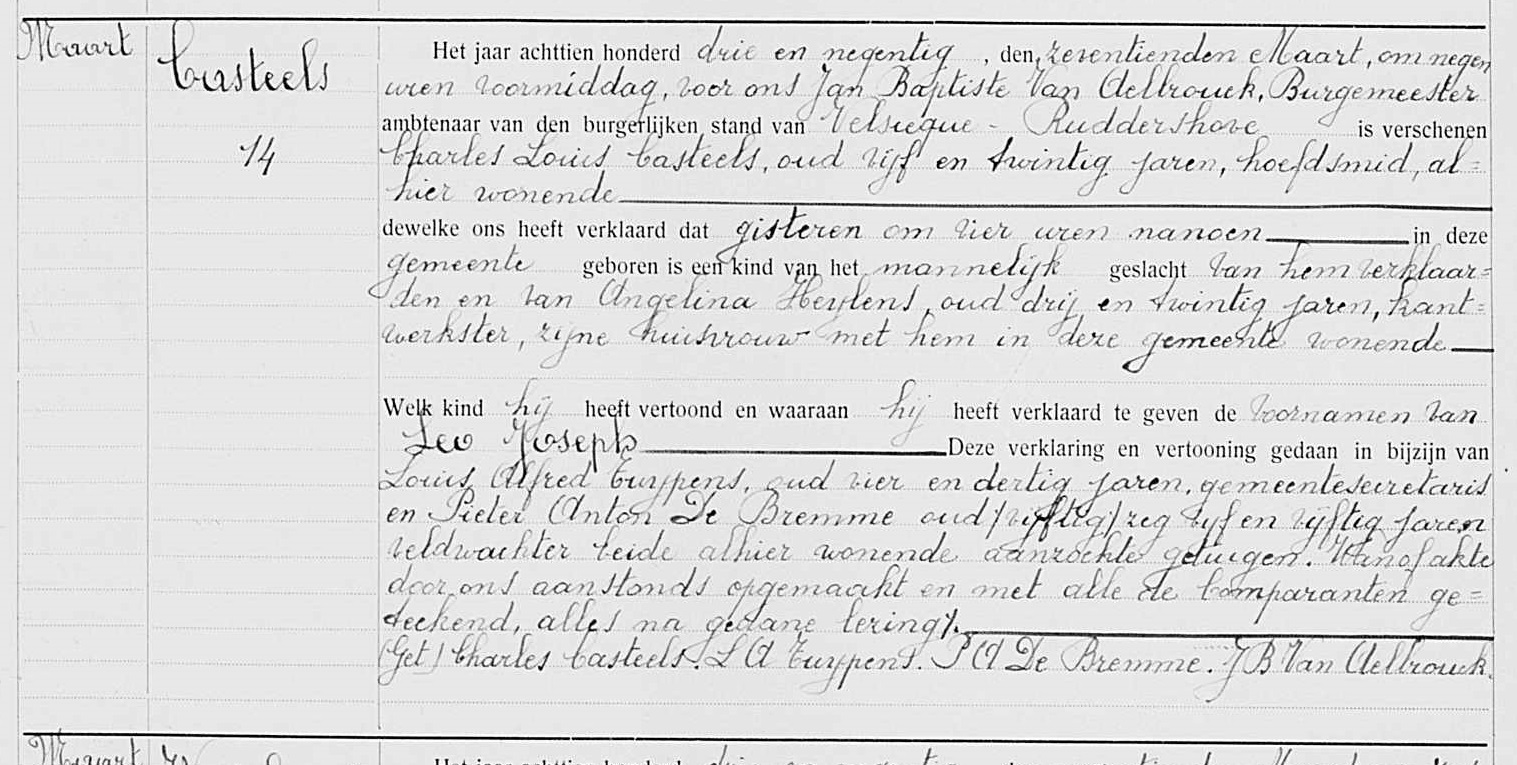 Maart
Casteels
14
Het jaar achttien honderd drie en negentig, den zeventienden Maart, om negen
uren voormiddag, voor ons Jan Baptiste Van Aelbrouck, Burgemeester
ambtenaar van den burgerlijken stand van Velsicque - Ruddershove is verschenen
Charles Louis Casteels, oud vijf en twintig jaren, hoefdsmid, al=
hier wonende
dewelke ons heeft verklaard dat gisteren om vier uren nanoen in deze
gemeente geboren is een kind van het mannelijk geslacht van hem verklaar=
den en van Angelina Heylens, oud drij en twintig jaren, kant=
werkster, zijne huisvrouw met hem in deze gemeente wonende
Welk kind hij heeft vertoond en waaraan hij heeft verklaard te geven de voornamen van
Leo Joseph Deze verklaring en vertooning gedaan in bijzijn van
Louis Alfred Tuypens, oud vier en dertig jaren, gemeentesecretaris
en Pieter Anton De Bremme oud /vijftig/ zeg vijf en vijftig jaren
veldwachter beide alhier wonende aanzochte getuigen. Wanof akte
door ons aanstonds opgemaakt en met alle de Comparanten ge=
teekend, alles na gedane lezing/.
(Get) Charles Casteels. L A Tuypens. P A De Bremme. J B Van Aelbrouck.
Maart
Het jaar achttien honderd drie en negentig